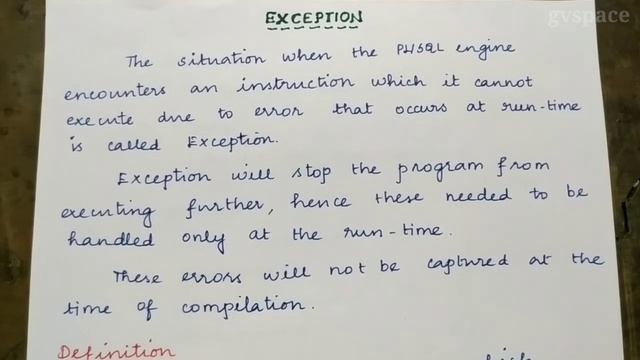 gvspace
EXCEPTION
The situation when the PL/SQL engine
encounters an instruction which it cannot
execute due to error that occurs at run-time
is called Exception.
Exception will stop the program from
executing further, hence these needed to be
handled only at the run-time.
These errors will not be captured at the
time of compilation.
Definition